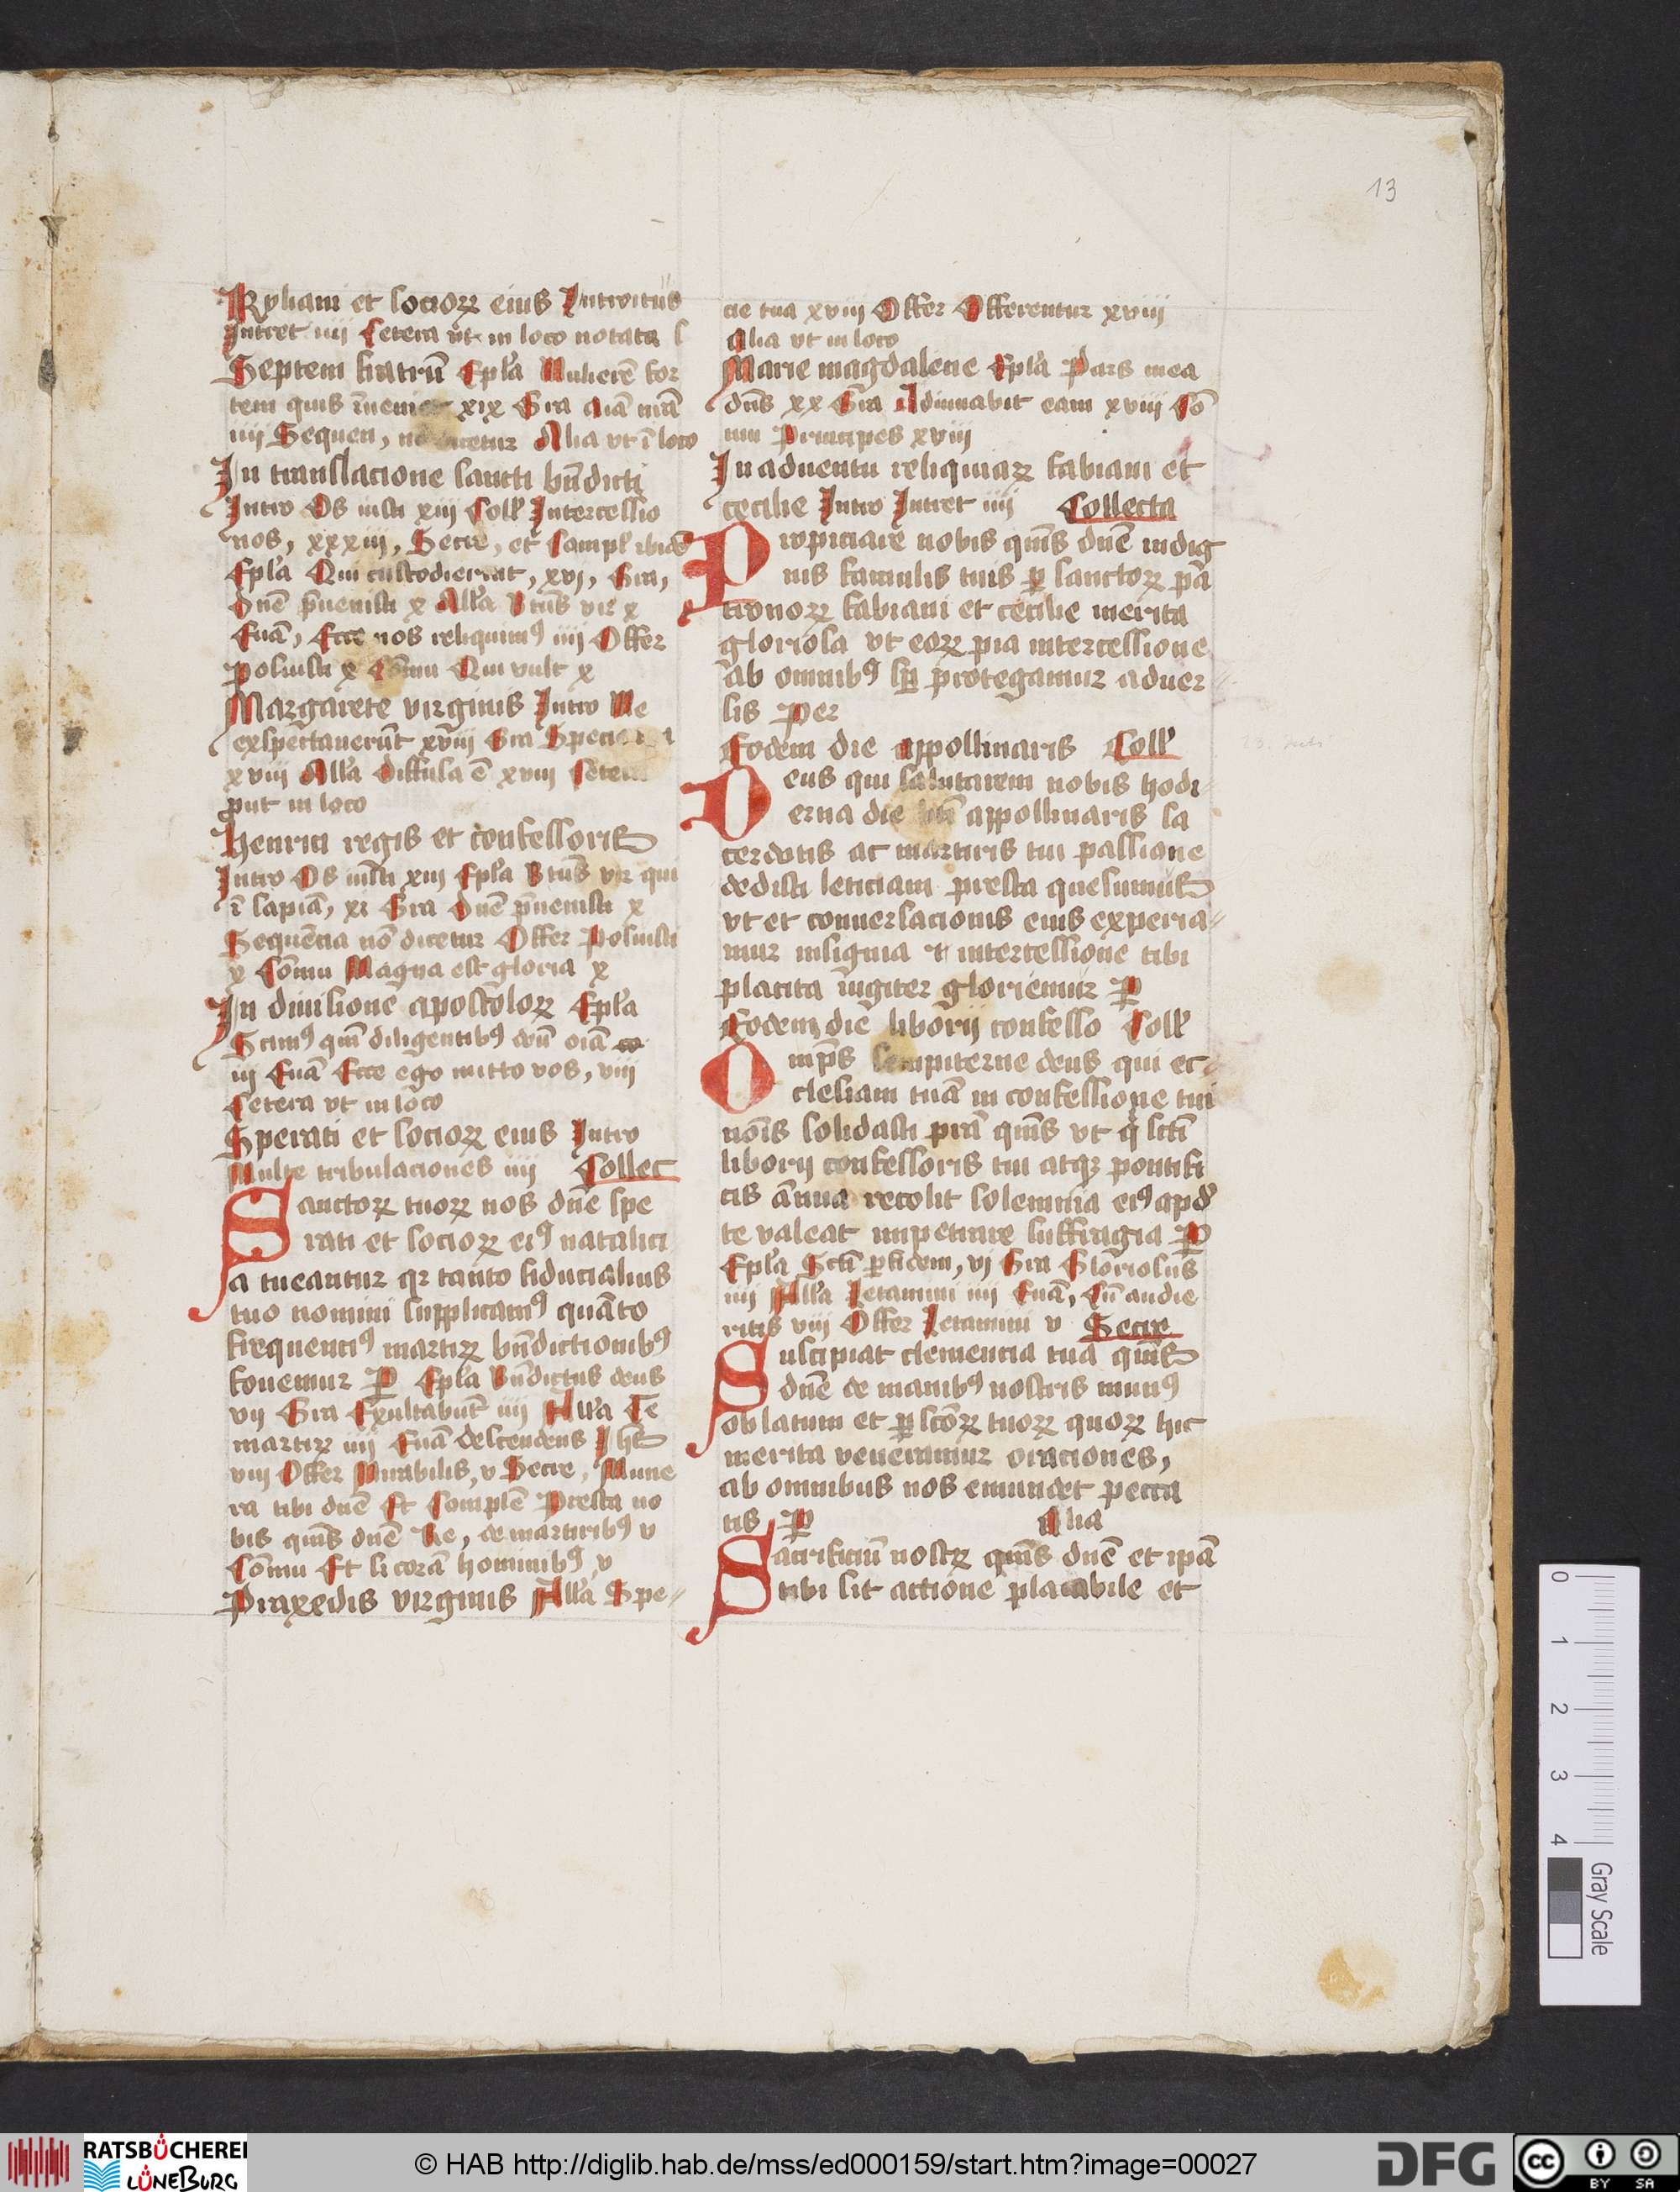 13
Kyliani et socioꝝ eius Introitus
Intret iiij Cetera vt in loco notata
Septem fratrū Ep̄la Mulierē for
tem quis īueniet xix Gra
iiij Sequen, Alia vt ī loco
In translacione sancti bn̄dicti
Intro Os iusti xiij Coll Intercessio
nos, xxxiij, Secre, et Compl ibidē
Ep̄la Qui custodierint, xvj, Gra,
Dn̄e p̄uenisti x All̄a Btūs vir x
Euā, Ecce nos reliquimꝰ iiij Offer
Posuisti x Cōmu Qui vult x
Margarete virginis Intro Me
exspectauerūt xviij Gra Specie
xviij All̄a Diffusa ē xviij Cetera
put in loco
Henrici regis et confessoris
Intro Os iusti xiij Ep̄la Btūs vir qui
ī sapiā, xi Gra Dn̄e p̄uenisti x
Sequēcia nō dicetur Offer Posuisti
x Cōmu Magna est gloria x
In diuisione apostoloꝝ Ep̄la
Scimꝰ qm̄ diligentibꝰ deū oīa
iij Euā Ecce ego mitto vos, viij
Cetera vt in loco
Sperati et socioꝝ eius Intro
Multe tribulaciones iiij Collec
Sanctoꝝ tuoꝝ nos dn̄e spe
rati et socioꝝ eiꝰ natalici
a tueantur qr tanto fiducialius
tuo nomini supplicamꝰ quāto
frequenciꝰ martirꝝ bn̄dictionibꝰ
fouemur P Ep̄la Bn̄dictus deus
vij Gra Exultabūt iiij All̄a Te
martirꝝ iiij Euā descendens Ihes
viij Offer Mirabilis, v Secre, Mune
ra tibi dn̄e Et Complē Presta no
bis qm̄s dn̄e Re, de martiribꝰ v
Cōmu Et si corā hominibꝰ, v
Praxedis virginis All̄a Spe
cie tua xviij Offer Offerentur xviij
Alia vt in loco
Marie magdalene Ep̄la Pars mea
dn̄s xx Gra Adiuuabit eam xviij Cō
mu Principes xviij
In aduentu reliquiaꝝ fabiani et
cecilie Intro Intret iiij Collecta
Propiciare nobis qm̄s dn̄e indig
nis famulis tuis ꝑ sanctoꝝ pa
tronoꝝ fabiani et cecilie merita
gloriosa vt eoꝝ pia intercessione
ab omnibꝰ sp̄ protegamur aduer
sis Per
Eodem die appollinaris Coll
Deus qui salutarem nobis hodi
erna die appollinaris sa
cerdotis ac martiris tui passione
dedisti leticiam presta quesumus
vt et conuersacionis eius experia
mur insignia et intercessione tibi
placita iugiter gloriemur P
Eodem die liborij confesso Coll
Omp̄s sempiterne deus qui ec
clesiam tuā in confessione tui
nōis solidasti prā qm̄s vt q̄ scti
liborij confessoris tui atqꝫ pontifi
cis ānua recolit solemnia eiꝰ apd
te valeat impetrare suffragia P
Ep̄la Scti ꝑ fidem, vj Gra Gloriosus
iiij All̄a Letamini iiij Euā, Cū audie
ritis viij Offer Letamini v Secre
Suscipiat clemencia tua qm̄s
dn̄e de manibꝰ nostris munꝰ
oblatum et ꝑ scōꝝ tuoꝝ quoꝝ hic
merita veneramur oraciones,
ab omnibus nos emundet pecca
tis P Alia
Sacrificiū nostrꝝ qm̄s dn̄e et ipā
tibi sit actione placabile et
0 1 2 3 4
Gray Scale
RATSBÜCHEREI
LÜNEBURG
© HAB http://diglib.hab.de/mss/ed000159/start.htm?image=00027
DFG
cc BY SA